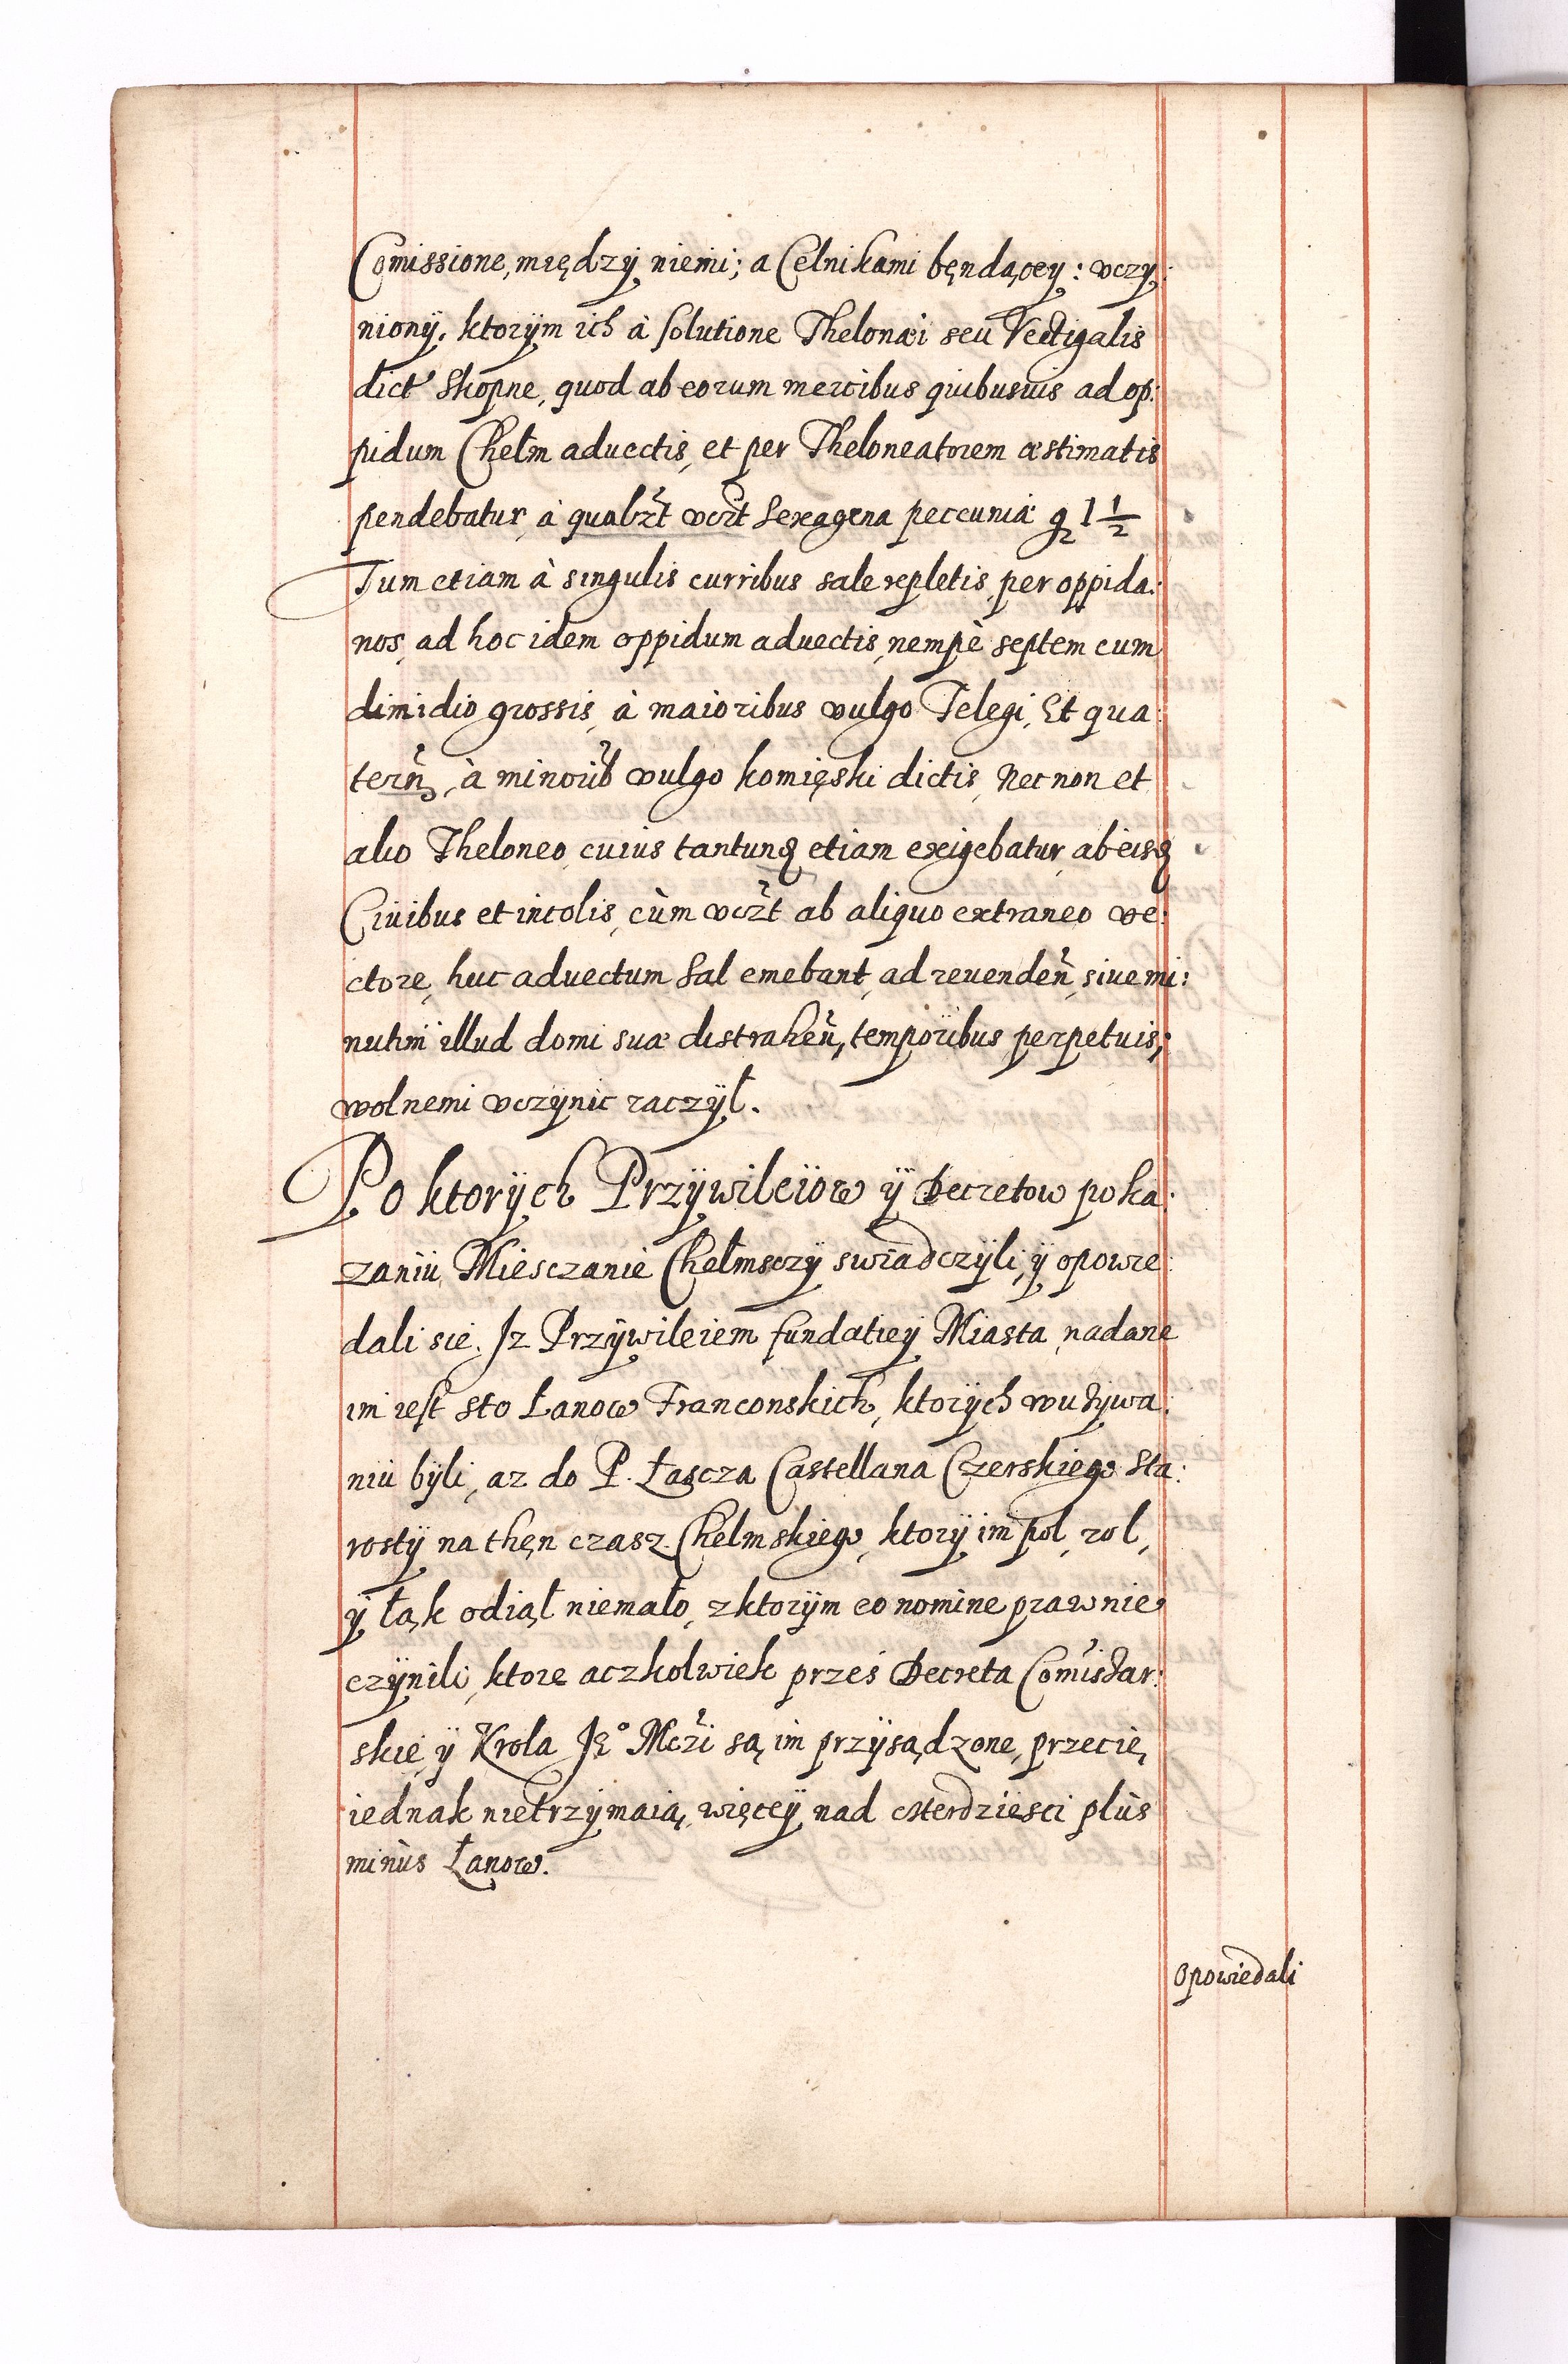 Comissione, między niemi; a Celnikami bęndącey: vczy:
nionÿ. ktorÿm ich à solutione Thelonæi seu Vectigalis
dict Skopne, quod ab eorum mercibus quibusuis ad op:
pidum Chełm aduectis, et per Theloneatorem æstimatis
pendebatur, à qualz̃t vcz̃t Sexagena peccuniæ g̃ 1 1/2
Tum etiam à singulis curribus sale repletis, per oppida:
nos, ad hoc idem oppidum aduectis, nempè septem cum
dimidio grossis, à maioribus vulgo Telegi, Et qua:
terñ, à minorib vulgo komięski dictis, Nec non et
alio Theloneo, cuius tantunq etiam exigebatur, ab eisq
Ciuibus et incolis, cùm vcz̃t ab aliquo extraneo ve:
ctore, huc aduectum Sal emebant, ad reuendeñ, siue mi:
nutim illud domi suæ distraheñ, temporibus perpetuis;
wolnemi vczÿnic raczÿł.
Po ktorÿch Przÿwileiow ÿ Decretow poka:
zaniu, Miesczanie Chełmsczÿ swiadczÿli, ÿ opowie:
dali sie. Jz Przÿwileiem fundatieÿ Miasta, nadane
im iest sto Łanow Franconskich, ktorÿch w vzÿwa:
niu bÿli, az do P. Łascza Castellana Czerskiego Sta:
rostÿ na thęn czasz Chelmskiego, ktorÿ im pol, rol,
ÿ łąk odiął niemało, z ktorÿm eo nomine prawnie
czÿnili, ktore aczkolwiek przes Decreta Comissar:
skie, ÿ Krola Jeº Mcži są im przÿsądzone, przecię,
iednak nietrzÿmaią, więceÿ nad czterdziesci plùs
minùs Łanow.
opowiedali